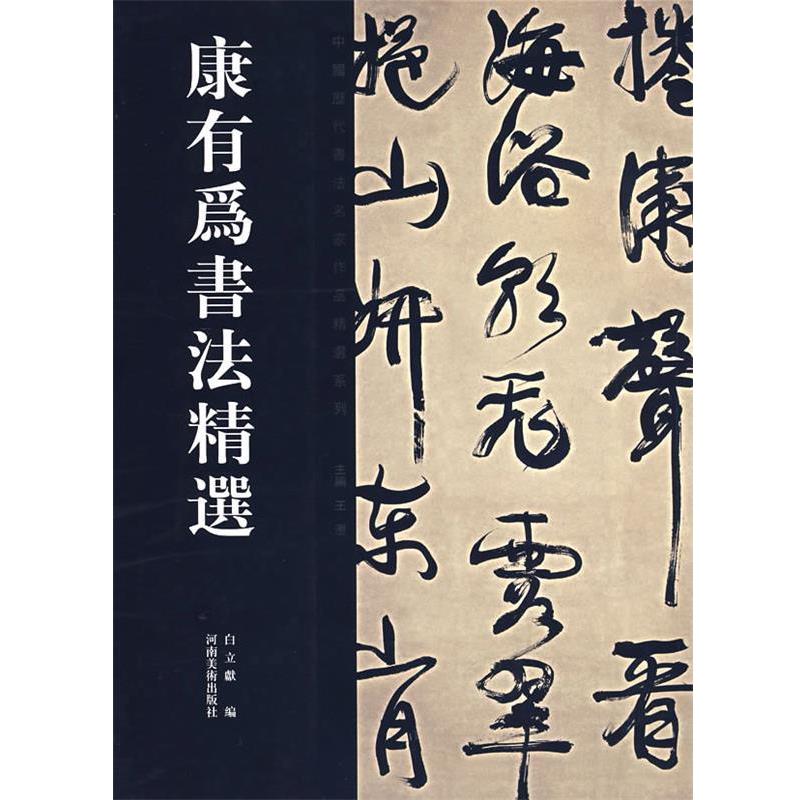 捲聲看
海浴露翠
山妍东
中國歷代書法名家作品精選系列 主編 王澄
康有爲書法精選
白立獻 編
河南美術出版社